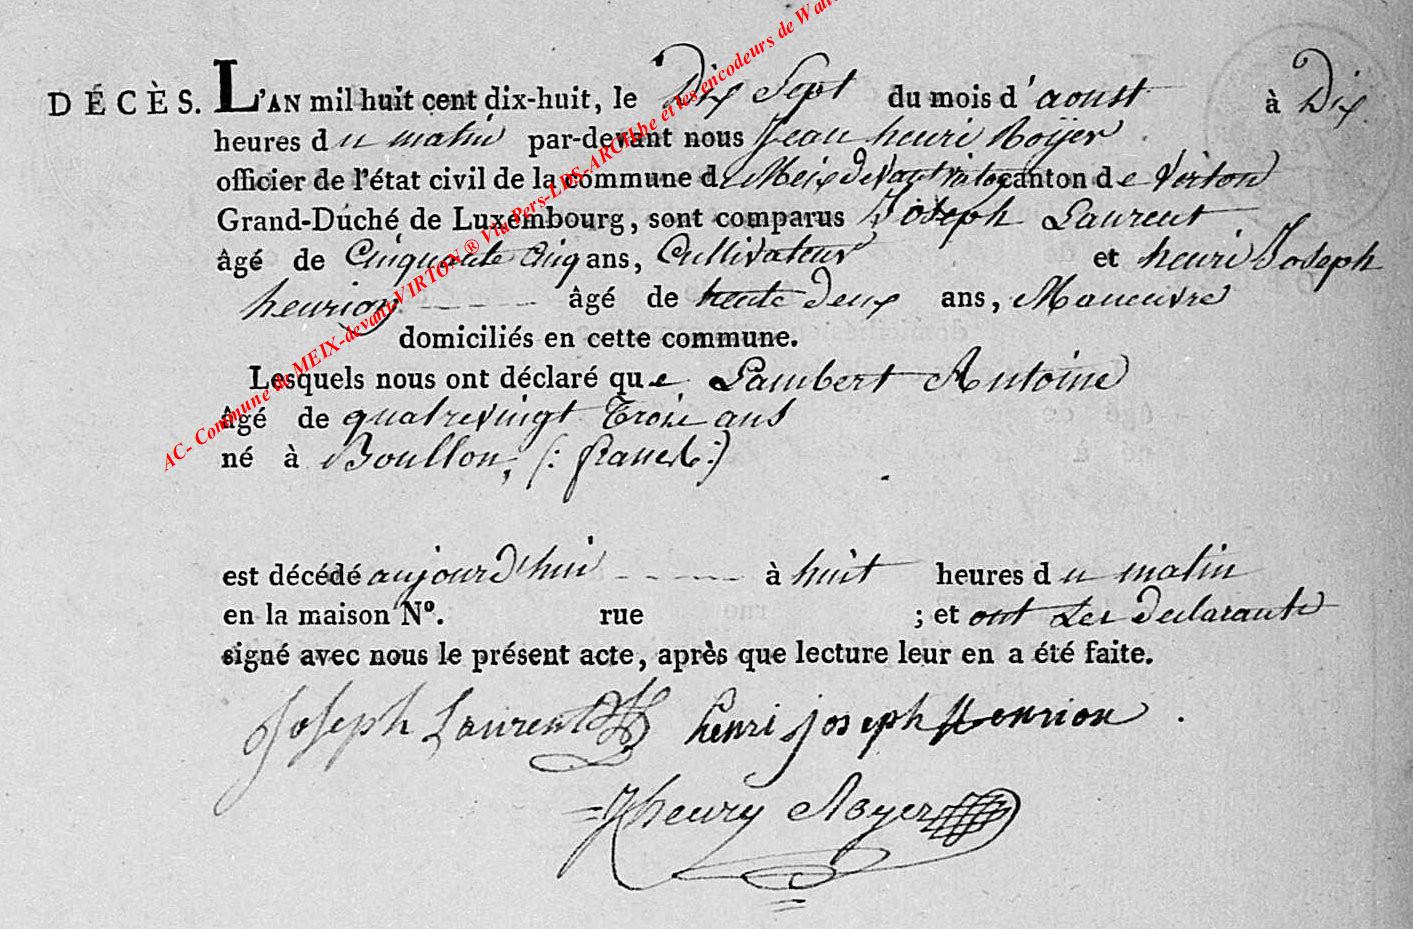 DÉCÈS. L'AN mil huit cent dix-huit, le Dix Sept du mois d'aoust à Dix
heures du matin par-devant nous Jean henri Roÿer
officier de l'état civil de la commune de Meix devant virton canton de Virton
Grand-Duché de Luxembourg, sont comparus Joseph Laurent
âgé de Cinquante Cinq ans, Cultivateur et henri Joseph
henrion âgé de trente deux ans, Maneuvre
domiciliés en cette commune.
Lesquels nous ont déclaré que Lambert Antoine
âgé de quatrevingt Trois ans
né à Boullon, (: france :)
est décédé aujourd'hui à huit heures du matin
en la maison Nº. rue ; et ont Les declarants
signé avec nous le présent acte, après que lecture leur en a été faite.
Joseph Laurent henri joseph henrion
Jhenry Royer
AC- Commune de MEIX-devant-VIRTON ® Via Pers-LDS-ARCH.be et les encodeurs de